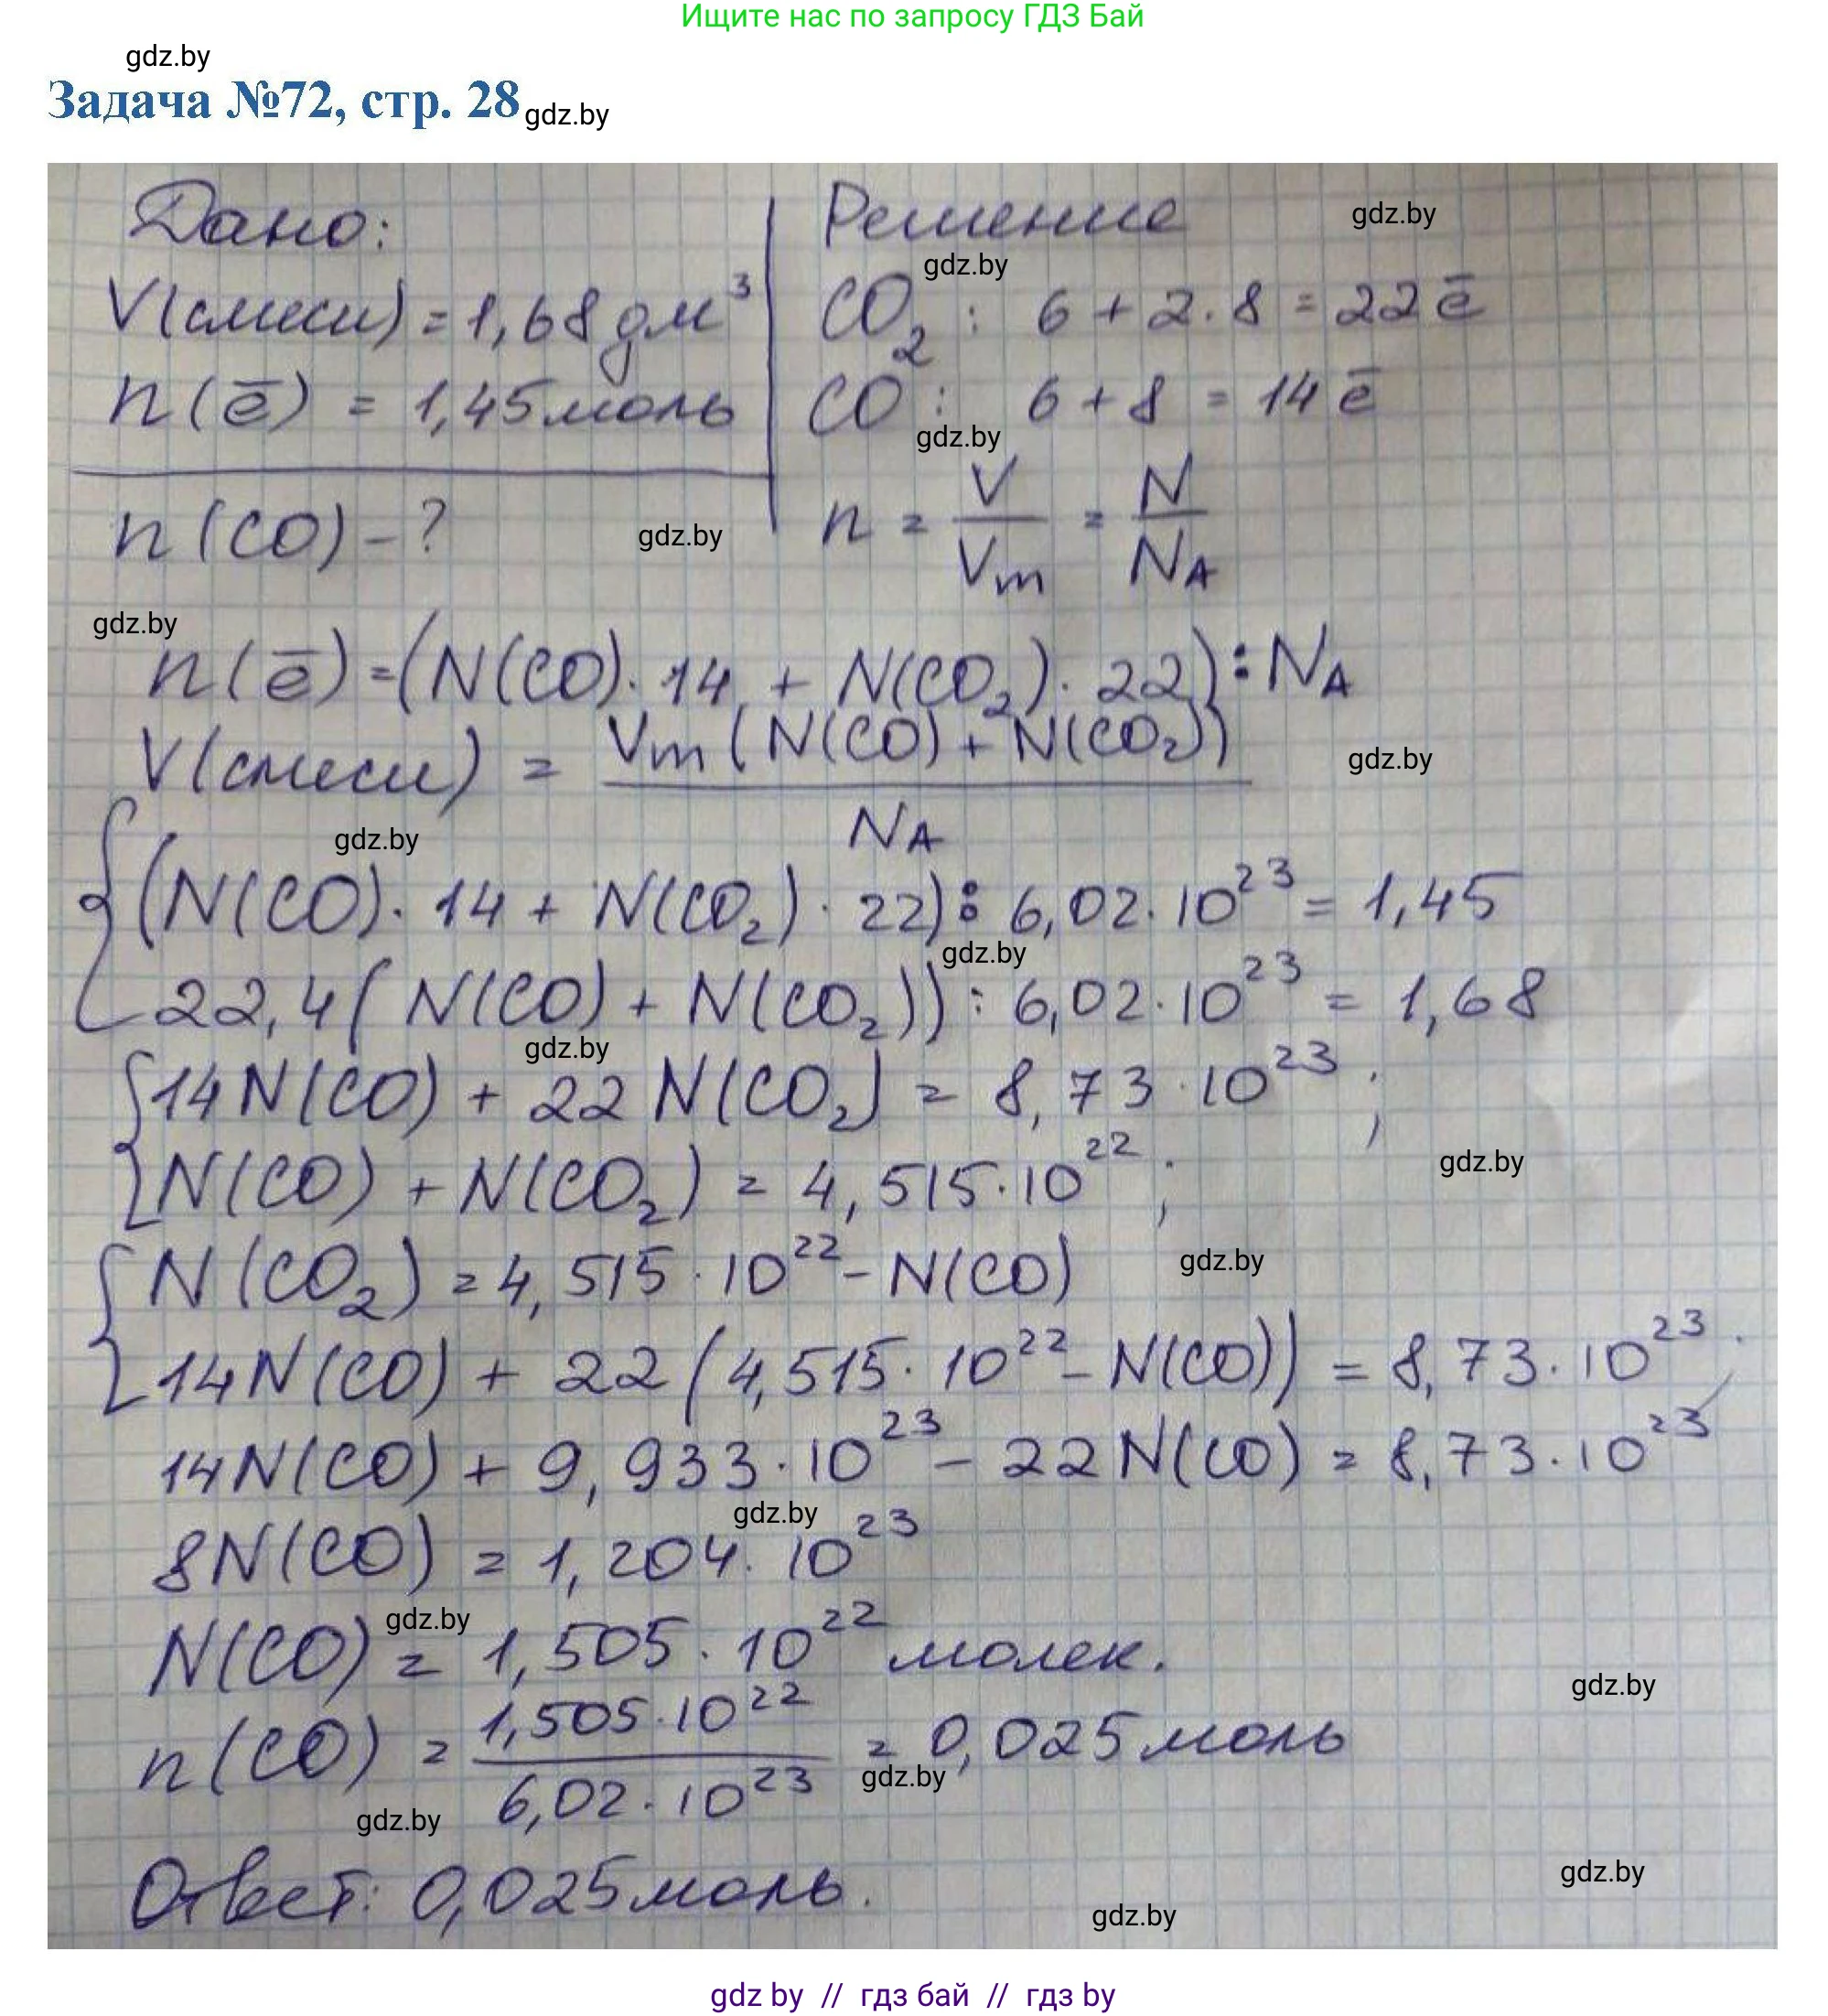 Ищите нас по запросу ГДЗ Бай
gdz.by
Задача №72, стр. 28 gdz.by
Дано:
V(смеси) = 1,68 дм³
n(ē) = 1,45 моль
n(CO) - ?
Решение
gdz.by
gdz.by
CO₂: 6 + 2·8 = 22 ē
CO: 6 + 8 = 14 ē
gdz.by
n = V/Vm = N/NA
gdz.by
gdz.by
n(ē) = (N(CO)·14 + N(CO₂)·22) : NA
V(смеси) = Vm(N(CO) + N(CO₂)) / NA
gdz.by
gdz.by
{(N(CO)·14 + N(CO₂)·22) : 6,02·10²³ = 1,45
gdz.by
22,4(N(CO) + N(CO₂)) : 6,02·10²³ = 1,68
gdz.by
{14N(CO) + 22N(CO₂) = 8,73·10²³;
N(CO) + N(CO₂) = 4,515·10²²;
gdz.by
{N(CO₂) = 4,515·10²² - N(CO)
gdz.by
14N(CO) + 22(4,515·10²² - N(CO)) = 8,73·10²³;
14N(CO) + 9,933·10²³ - 22N(CO) = 8,73·10²³
gdz.by
8N(CO) = 1,204·10²³
gdz.by
N(CO) = 1,505·10²² молек.
gdz.by
n(CO) = 1,505·10²² / 6,02·10²³ = 0,025 моль
gdz.by
gdz.by
Ответ: 0,025 моль.
gdz.by
gdz.by
gdz by // гдз бай // гдз by